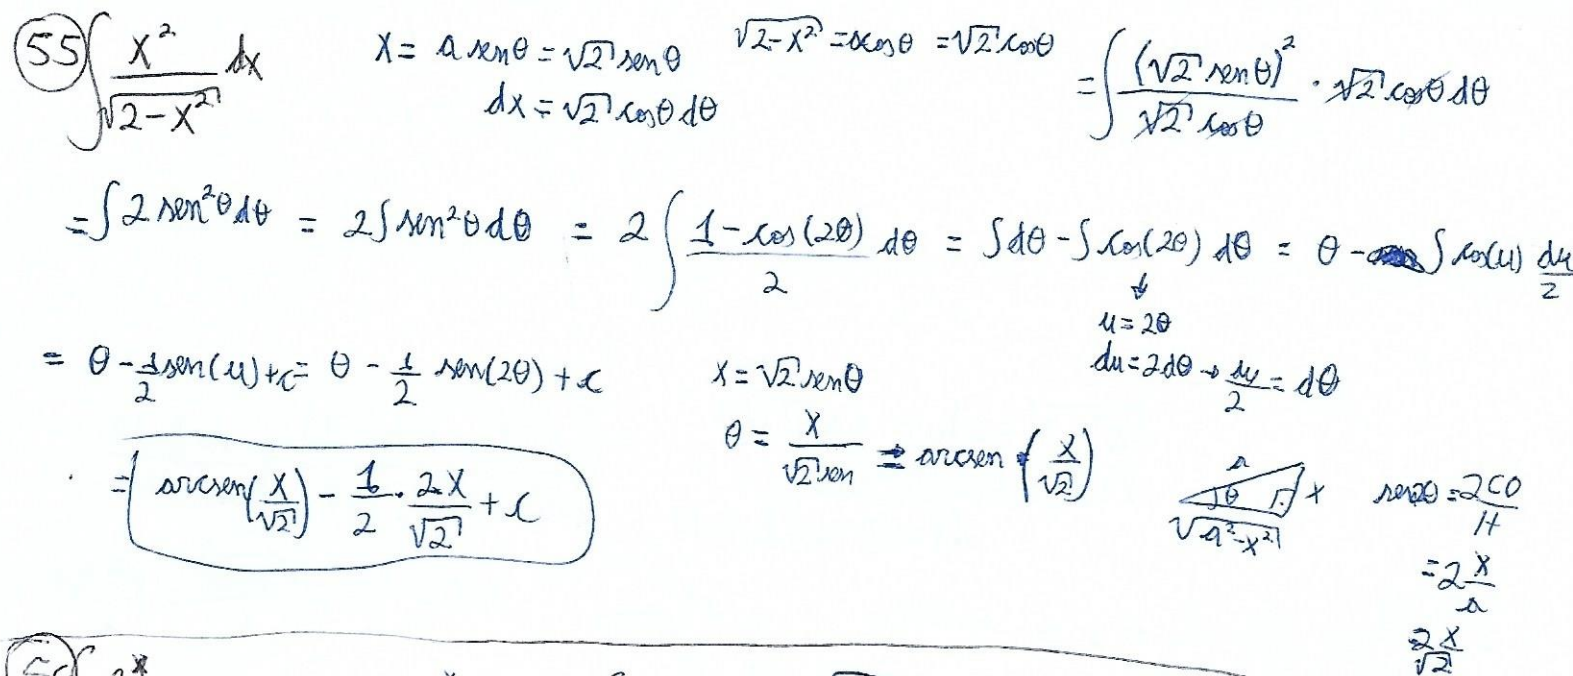 55) ∫ x²/√(2-x²) dx   x = a senθ = √2 senθ   √(2-x²) = a cosθ = √2 cosθ   = ∫ (√2 senθ)²/(√2 cosθ) · √2 cosθ dθ
dx = √2 cosθ dθ
= ∫ 2 sen²θ dθ = 2∫ sen²θ dθ = 2 ∫ (1-cos(2θ))/2 dθ = ∫dθ - ∫ cos(2θ) dθ = θ - ∫ cos(u) du/2
↓
u = 2θ
du = 2dθ → du/2 = dθ
= θ - 1/2 sen(u) + c = θ - 1/2 sen(2θ) + c   x = √2 senθ
θ = x/(√2 sen) = arcsen (x/√2)
= arcsen(x/√2) - 1/2 · 2x/√2 + c
a θ x √(a²-x²)   sen2θ = 2CO/H
= 2 x/a
2x/√2